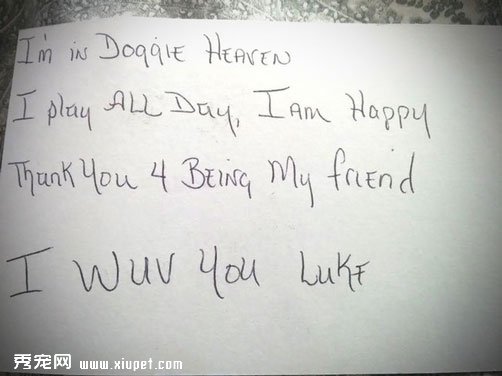 I'm in Doggie Heaven
I play All Day, I am Happy
Thank You 4 Being My friend
I Wuv You Luke
秀宠网 www.xiupet.com